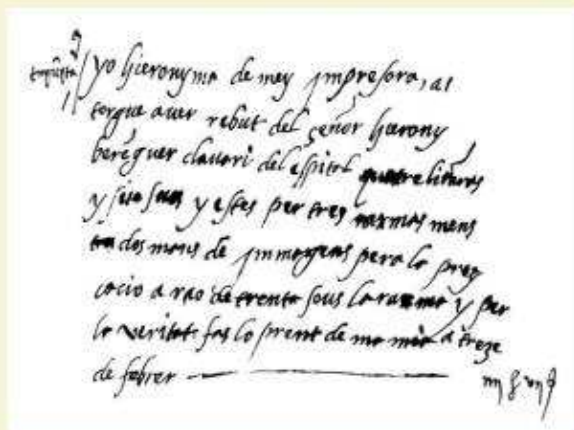 yo hieronyma de mey ympresora, at
torgue auer rebut del señor hierony
berẽguer clauari del espital quatre liures
y set sous y estes per tres raymas mens
dos mans de ymmagens pera la prey
cacio a rao de trenta sous la rayma y per
la veritat fas lo prent de ma mia a treze
de febrer